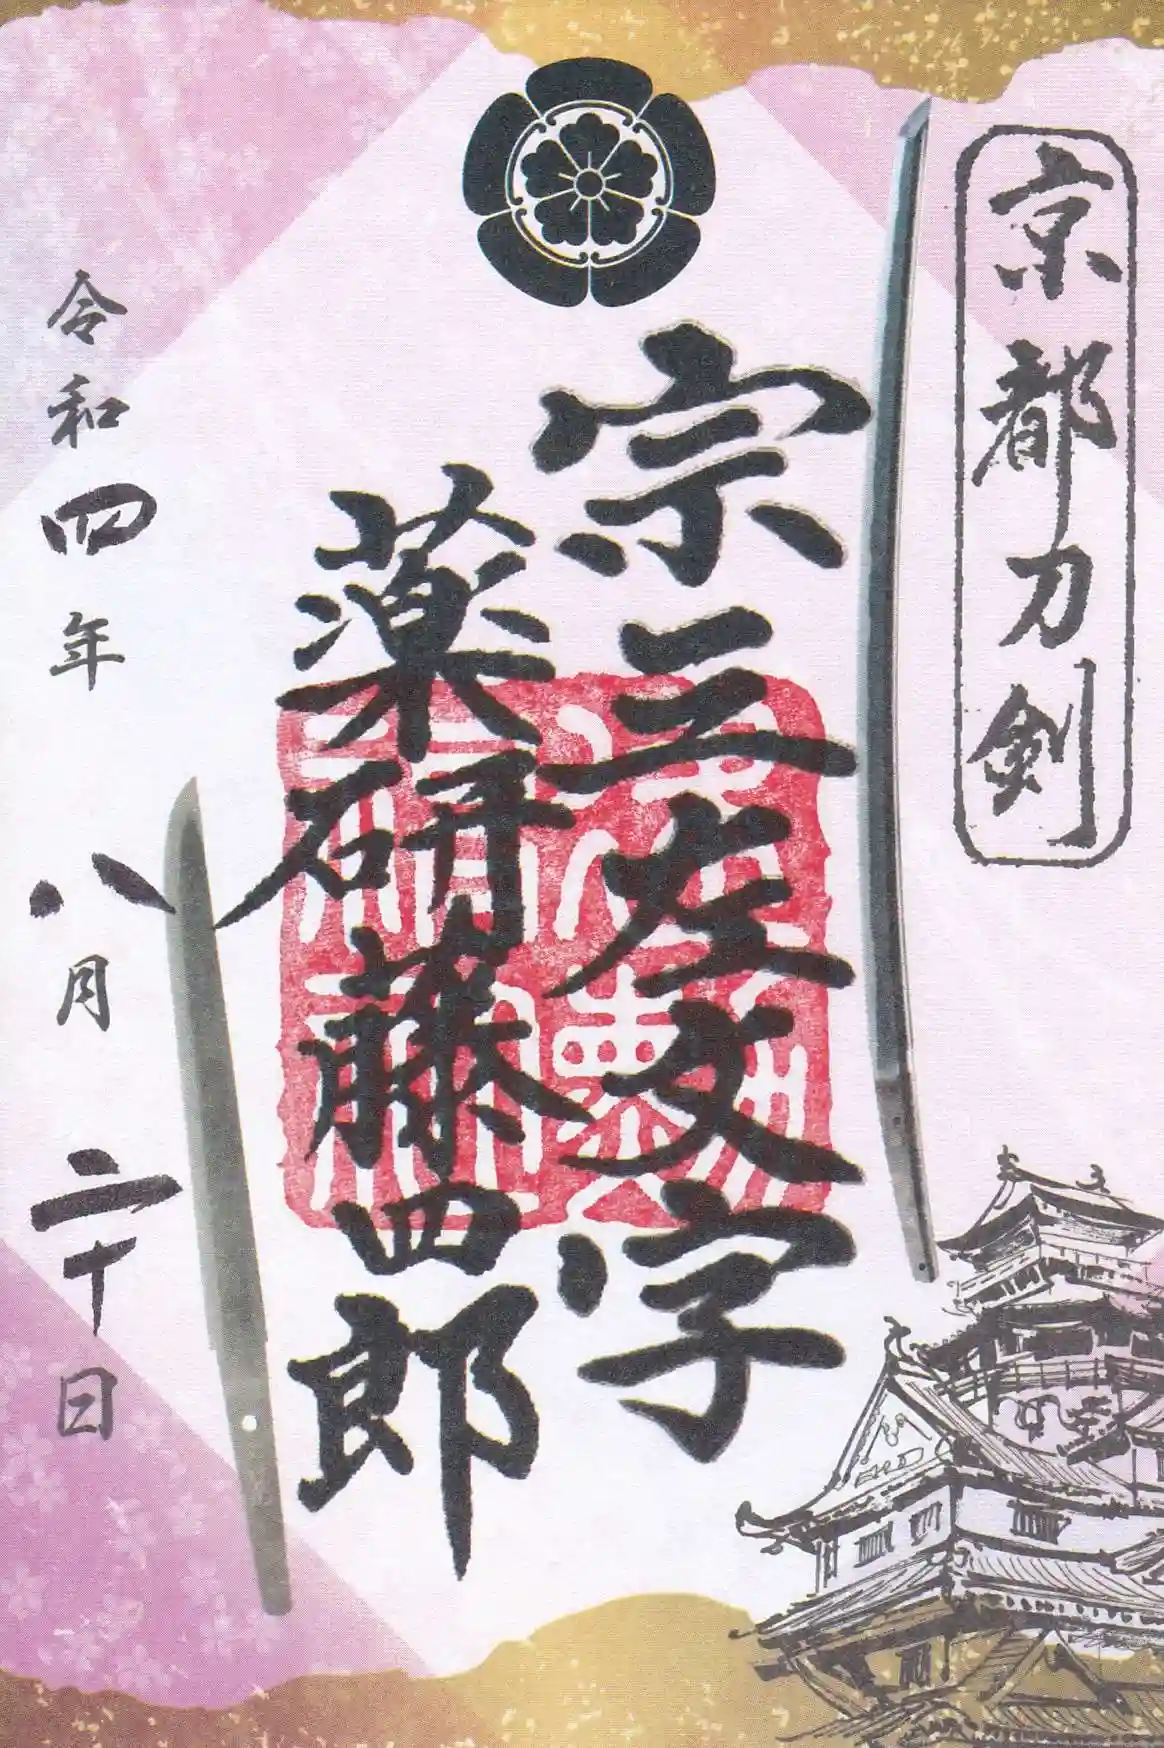 京都刀剣
宗三左文字
薬研藤四郎
令和四年八月二十日